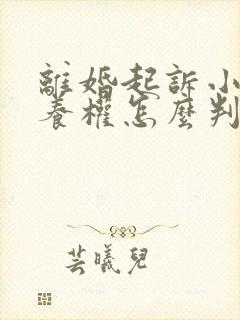 離婚起訴小
養權怎麼判
芸曦兒